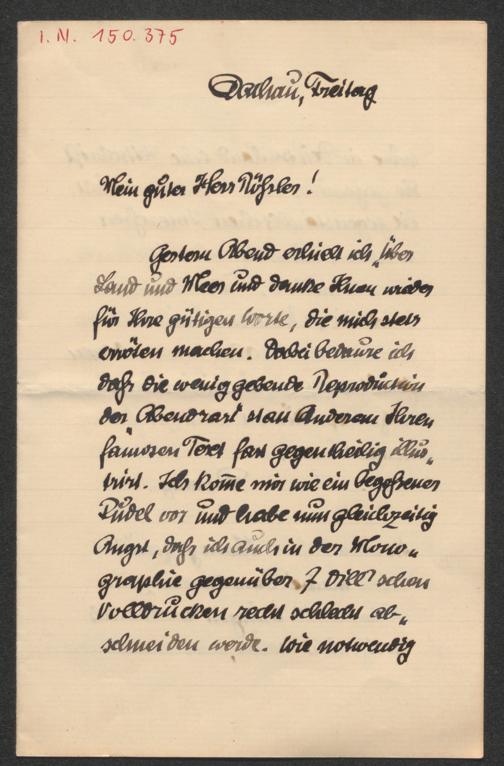 I. N. 150.375
Dachau, Freitag
Mein guter Herr Rößler!
Gestern Abend erhielt ich „über
Land und Meer und danke Ihnen wieder
für Ihre gütigen Worte, die mich stets
erröten machen. Dabei bedaure ich
daß die wenig gebende Reproduktion
der „Abendrast" statt Anderem Ihren
famosen Text fast gegenteilig illus„
trirt. Ich kom̅e mir wie ein begossener
Pudel vor und habe nun gleichzeitig
Angst, daß ich auch in der Mono„
graphie gegenüber 7 Dill'schen
Volldrucken recht schlecht ab„
schneiden werde. Wie notwendig